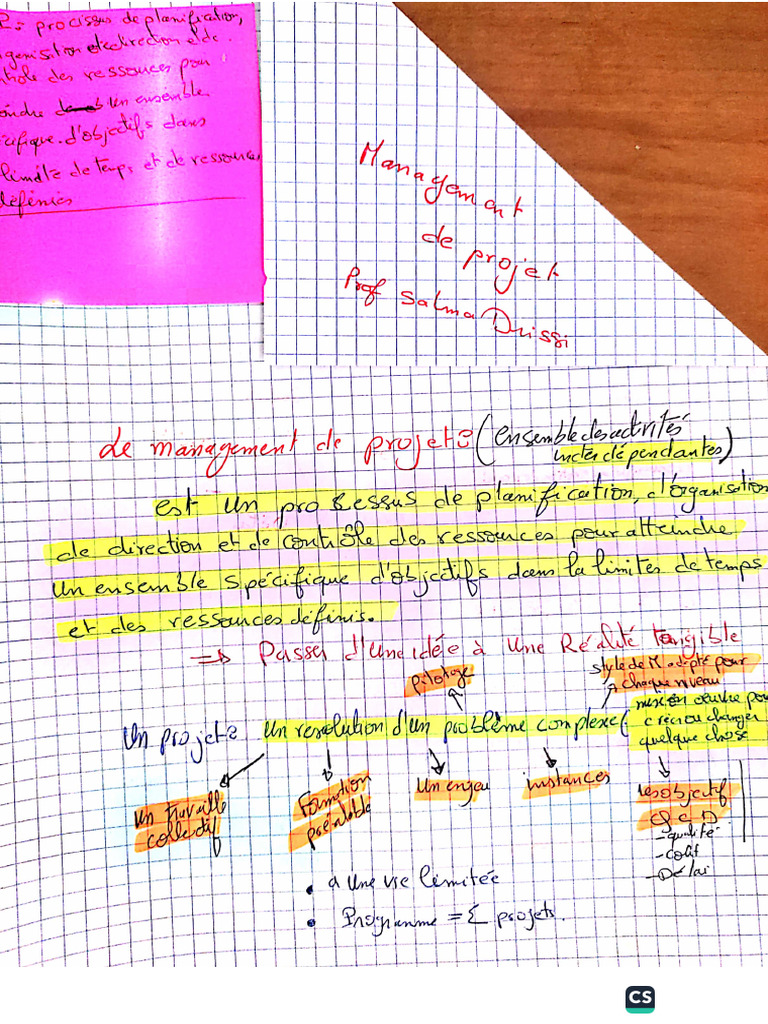 processus de planification,
et direction et de
des ressources pour
un ensemble
d'objectifs dans
limite de temps et de ressources
définies
Management
de projet
Prof Salma Drissi
Le management de projet : (ensemble des activités
interdépendantes)
est un processus de planification, d'organisation
de direction et de contrôle des ressources pour atteindre
un ensemble spécifique d'objectifs dans la limites de temps
et des ressources définis.
⇒ Passer d'une idée à une Réalité tangible
pilotage
style de M adapté pour
chaque niveau
Un projet : un resolution d'un problème complexe (mise en œuvre pour
créer ou changer
quelque chose
un travaille
collectif
Formation
préalable
Un enjeu
instances
les objectif
Q C D
- qualité
- coût
- Délai
• a une vie limitée
• Programme = Σ projets.
CS